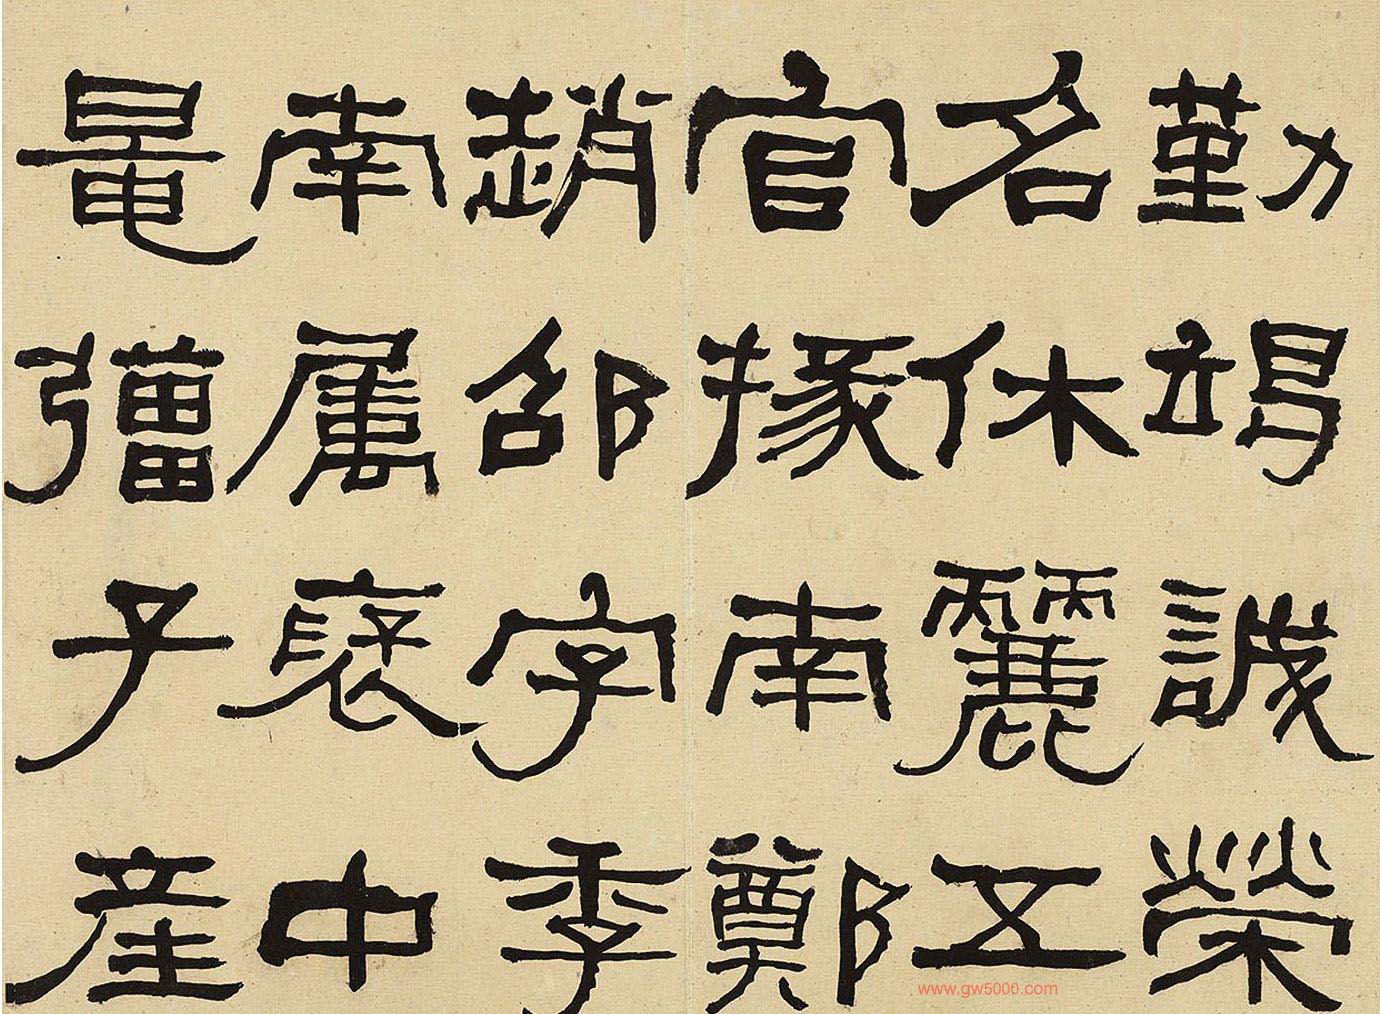 勤竭誠榮
名休麗五
官掾南鄭
趙邵字季
南屬褒中
鼂彊子産
www.gw5000.com